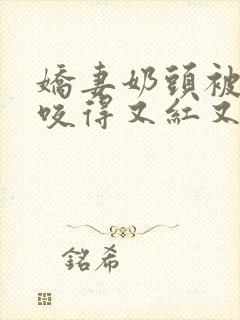 嬌妻奶頭被
咬得又紅又
銘希